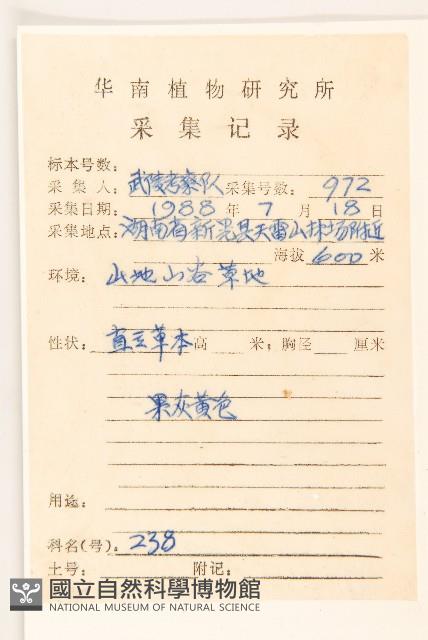 华南植物研究所
采集记录
标本号数:
采集人: 武陵考察队 采集号数: 972
采集日期: 1988 年 7 月 18 日
采集地点: 湖南省新晃县天雷山林场附近
海拔 600 米
环境: 山地山谷草地
性状: 直立草本 高 米; 胸径 厘米
果灰黄色
用途:
科名(号): 238
土号: 附记:
國立自然科學博物館
NATIONAL MUSEUM OF NATURAL SCIENCE